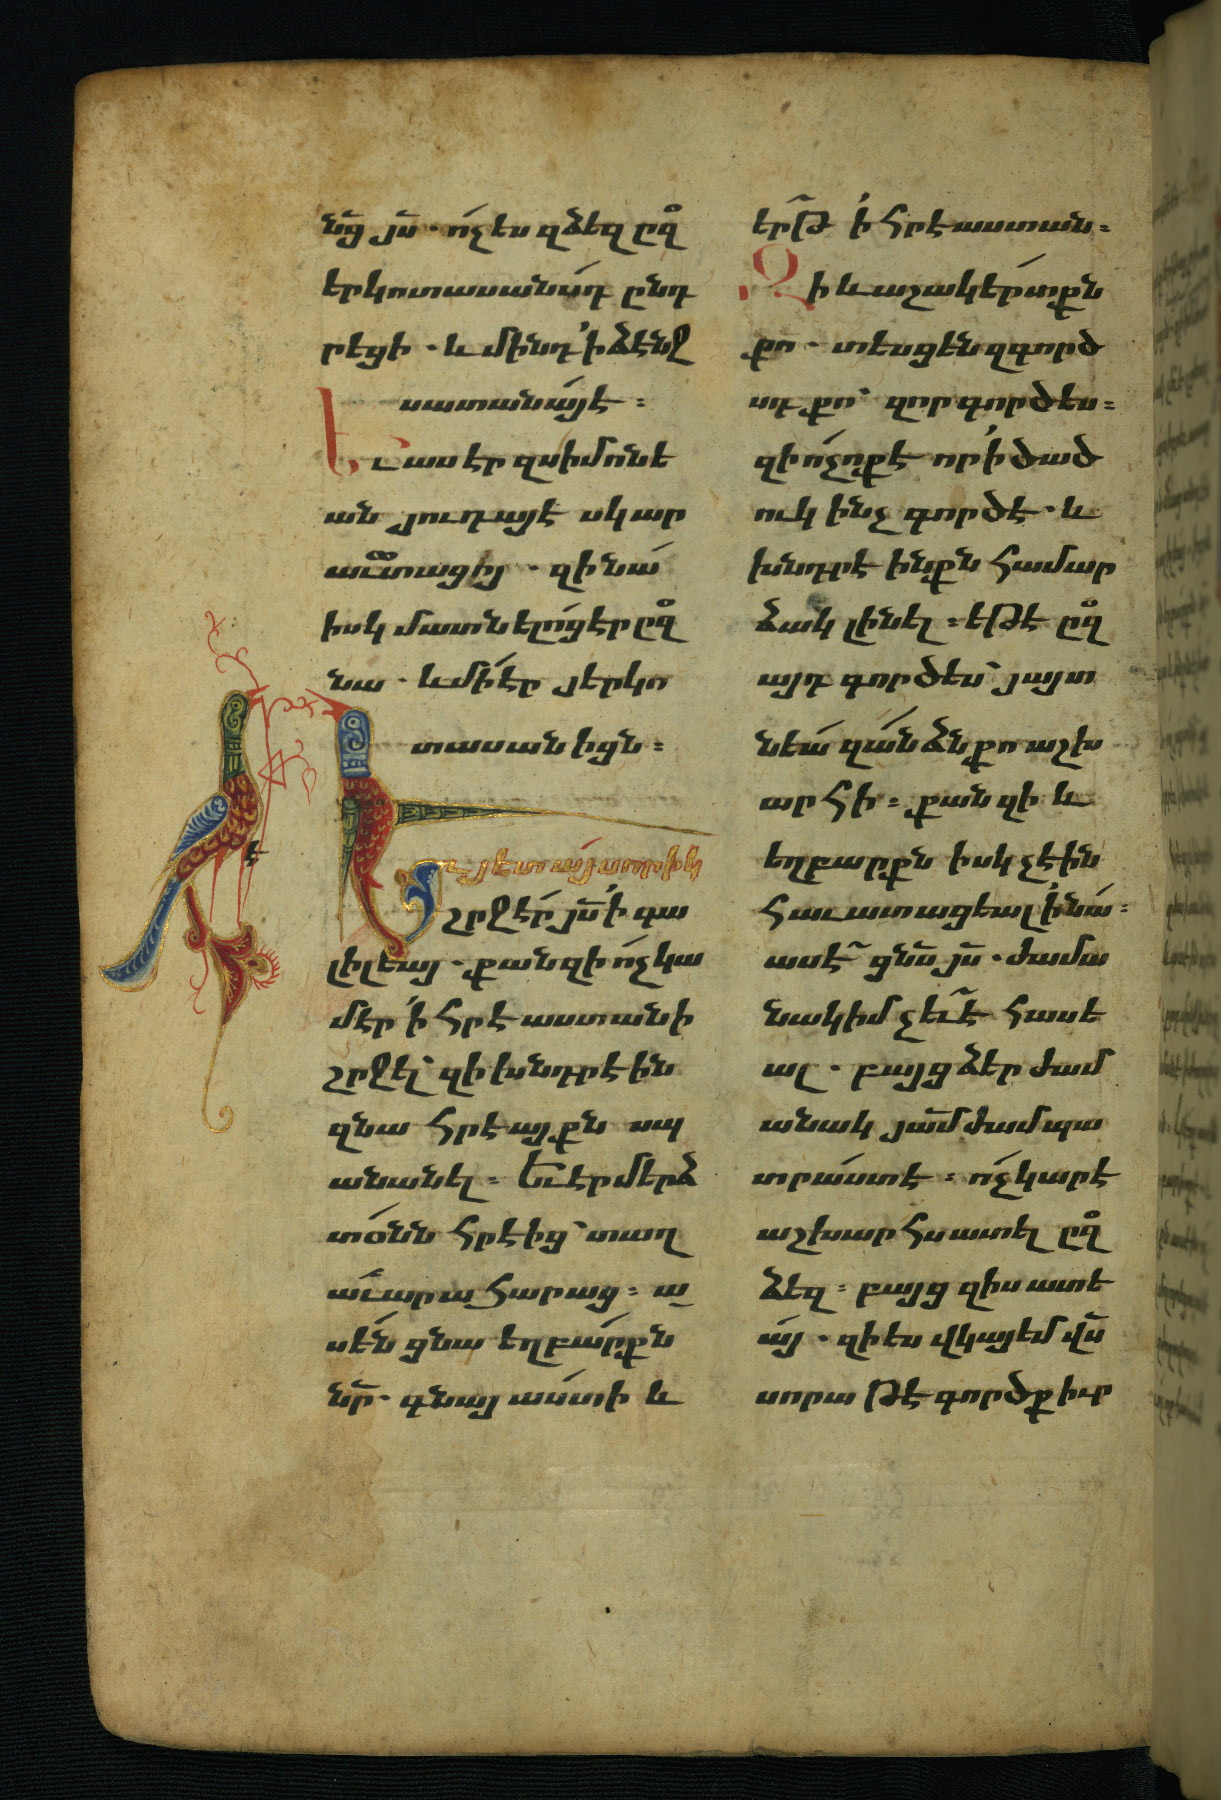 նց յս. ոչ ես զձեզ ըզ
երկոտասանսդ ընդ
րեցի. և մինդ ի ձէնջ
սատանայ է:
Եւ ասէր զսիմոնե
ան յուդայէ սկար
աւտացիյ. զի նա
իսկ մատնելոց էր ըզ
նա. և մի էր յերկո
տասանիցն:
Եւ յետ այսորիկ
շրջէր յս ի գա
լիլեայ. քանզի ոչ կա
մէր ի հրէաստանի
շրջել՝ զի խնդրէին
զնա հրէայքն սպ
անանել: Եւ էր մերձ
տօնն հրէից՝ տաղ
աւարահարաց: ա
սեն ցնա եղբարքն
նր. գնայ աստի և
երթ ի հրէաստան:
Զի և աշակերտքն
քո. տեսցեն զգործ
սդ քո՝ զոր գործես:
զի ոչ ոք է որ ի ծած
ուկ ինչ գործէ. և
խնդրէ ինքն համար
ձակ լինել: եթէ ըզ
այդ գործես՝ յայտ
նեա զանձն քո աշխ
արհի: քանզի և
եղբարքն իսկ չէին
հաւատացեալ ի նա:
ասէ ցնս յս. ժամա
նակ իմ չեւ է հասե
ալ. բայց ձեր ժամ
անակ յամ ժամ պա
տրաստ է: ոչ կարէ
աշխարհս ատել ըզ
ձեզ: բայց զիս ատե
այ. զի ես վկայեմ վս
սորա թէ գործք իւր